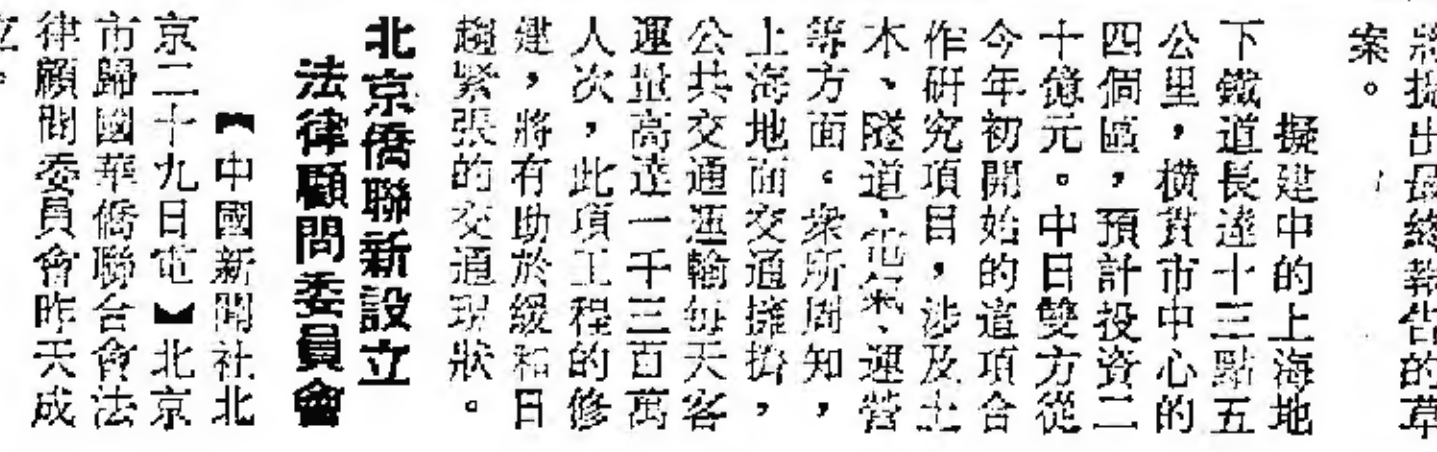 將提出最終報告的草
案。
擬建中的上海地
下鐵道長達十三點五
公里，橫貫市中心的
四個區，預計投資二
十億元。中日雙方從
今年初開始的這項合
作研究項目，涉及土
木、隧道、電氣、運營
等方面。衆所周知，
上海地面交通擁擠，
公共交通運輸每天客
運量高達一千三百萬
人次，此項工程的修
建，將有助於緩和日
趨緊張的交通現狀。
北京僑聯新設立
法律顧問委員會
【中國新聞社北
京二十九日電】北京
市歸國華僑聯合會法
律顧問委員會昨天成
立。